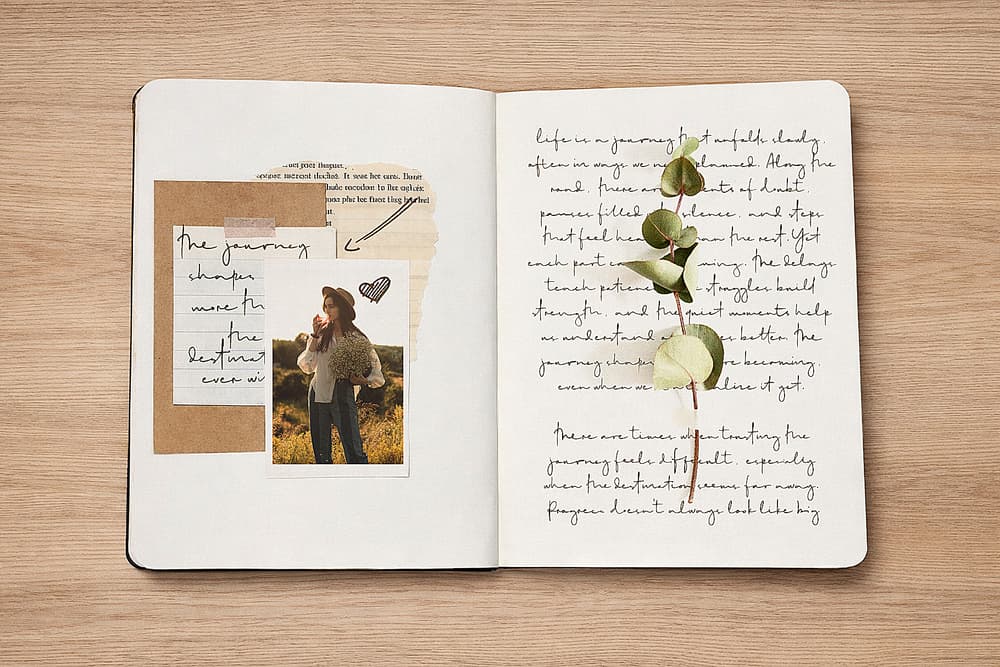 the journey
shapes
more
the
ever
life is a journey unfolds slowly,
often in ways we planned. Along the
road, there are of doubt,
pauses filled silence, and steps
that feel than the rest. Yet
each part The delays
teach struggles build
strength, and the quiet moments help
us understand better. The
journey becoming,
even when we it yet.
There are times when trusting the
journey feels difficult, especially
when the destination seems far away.
Progress doesn't always look like big